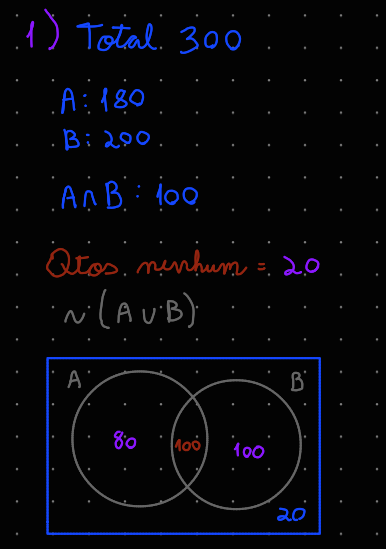 1) Total 300
A: 180
B: 200
A∩B: 100
Qtos nenhum = 20
~(A∪B)
A B
80 100 100
20